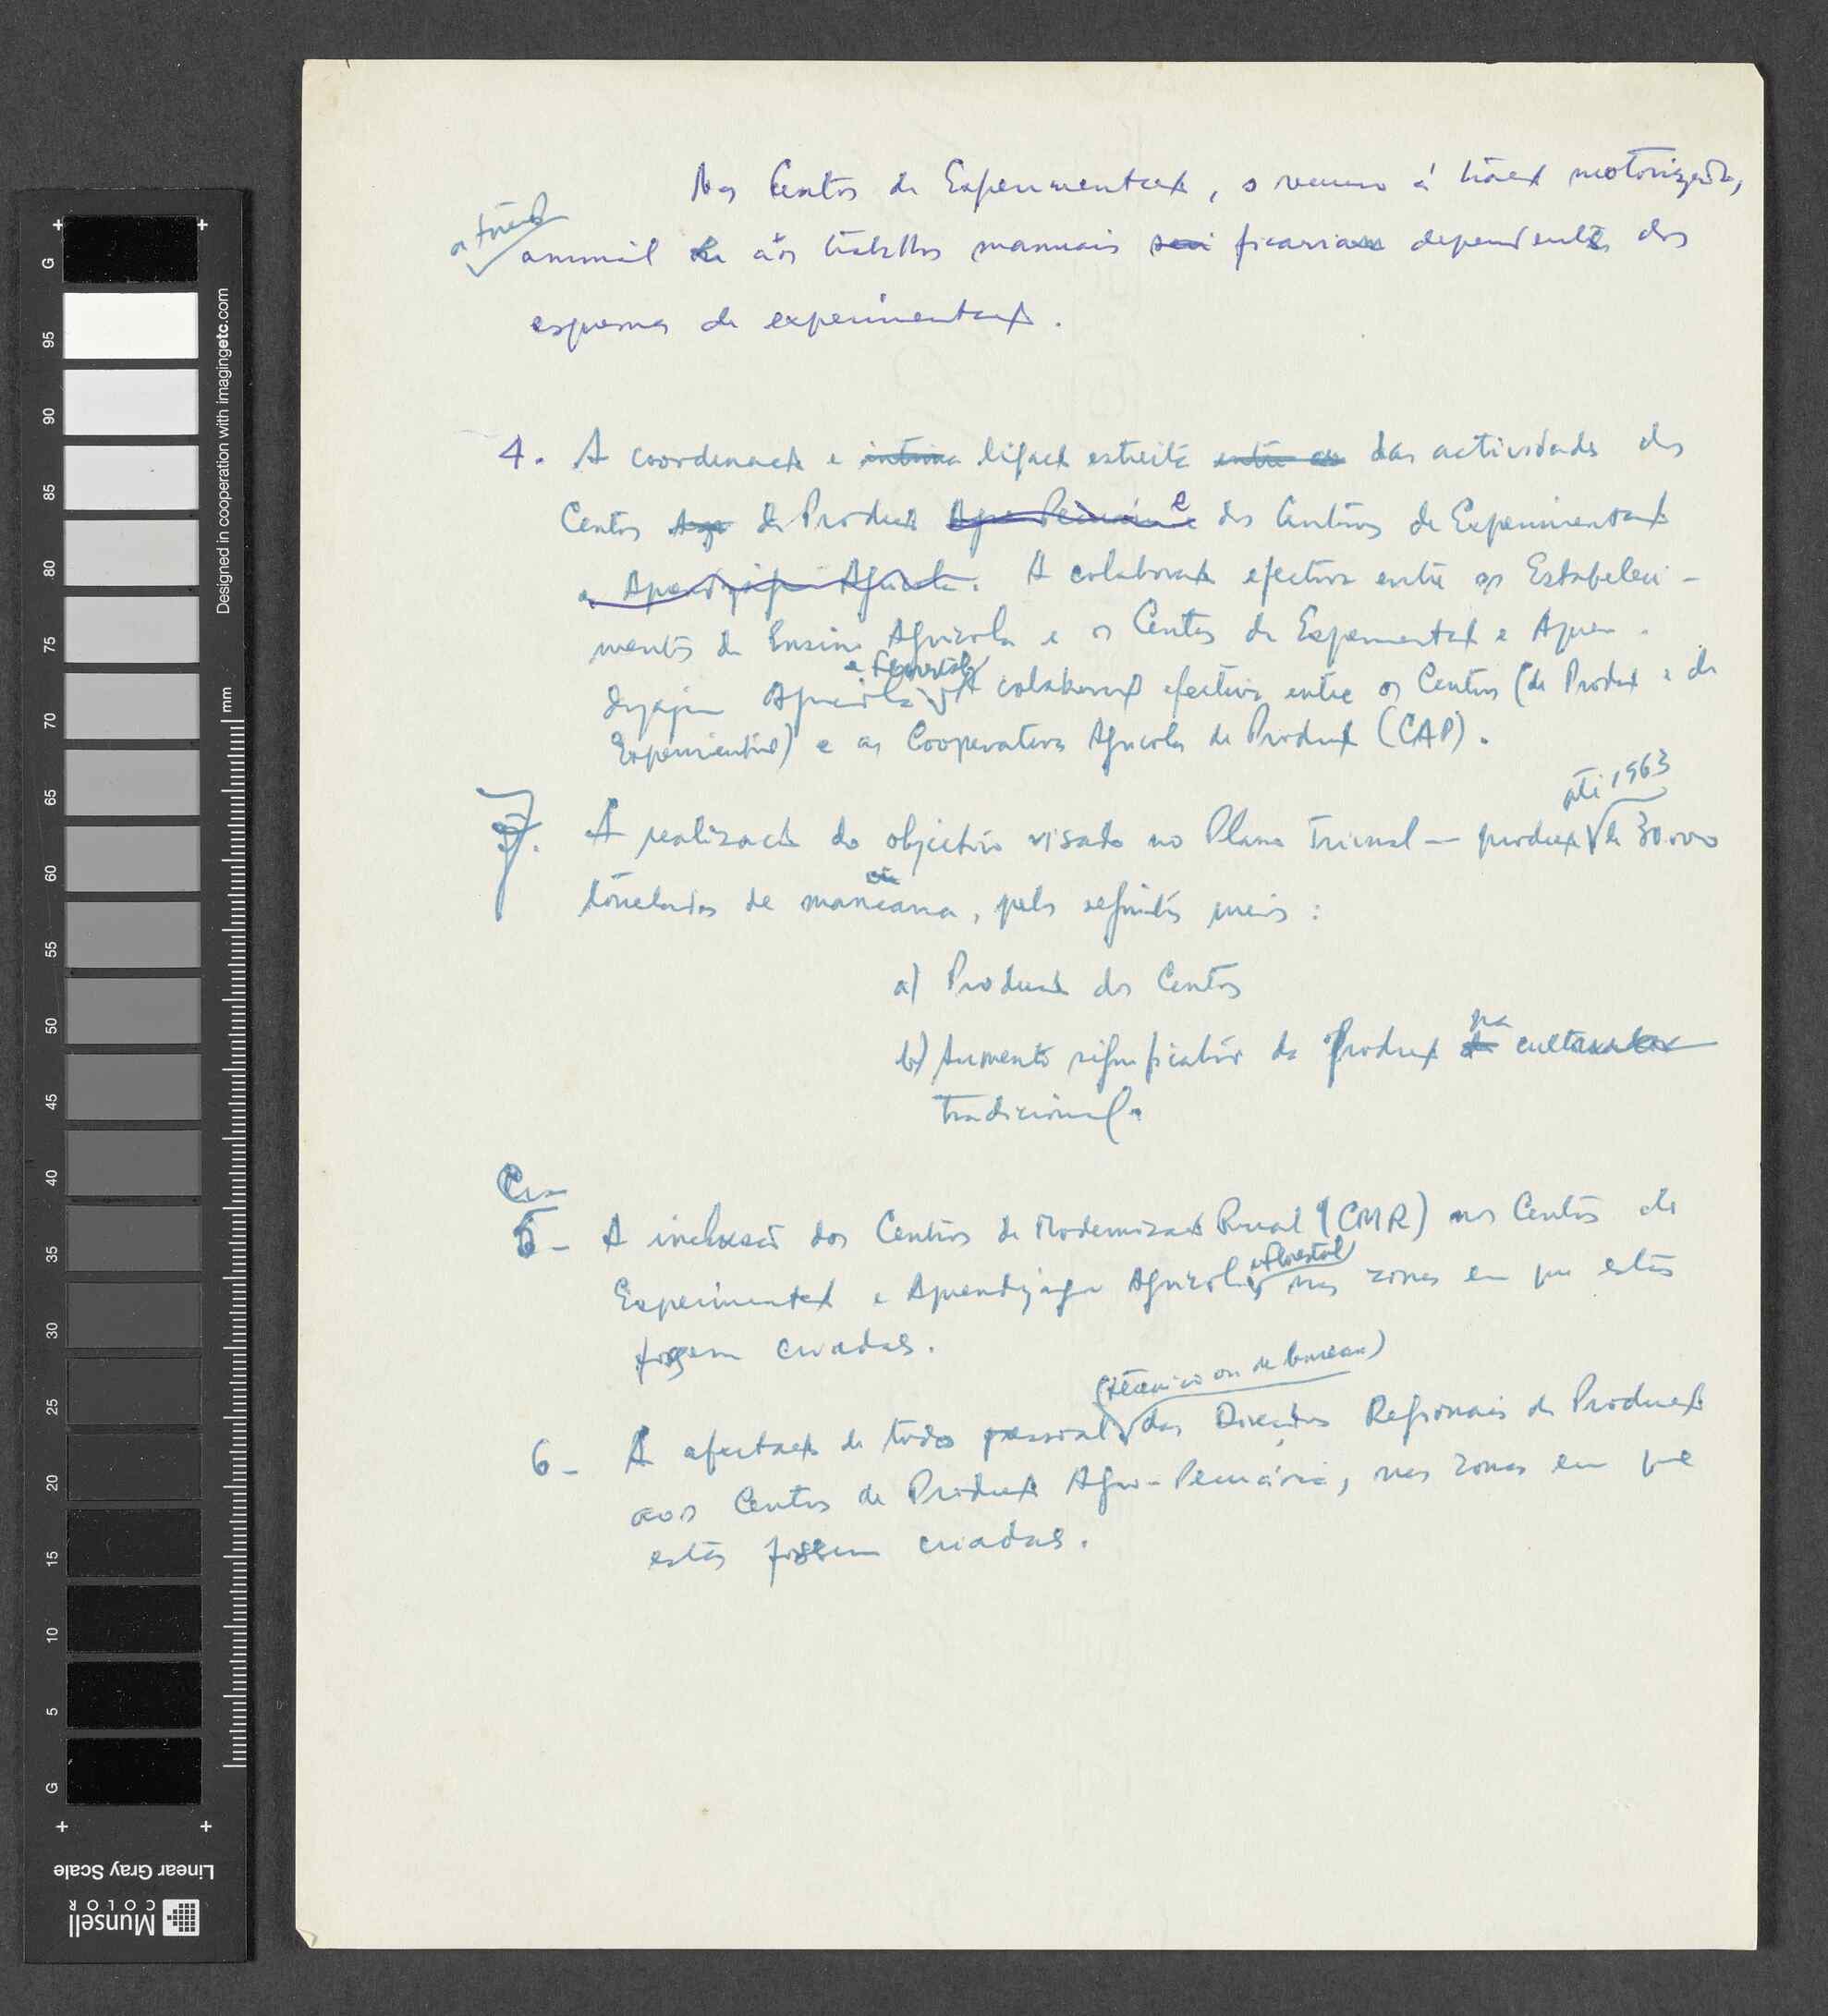 Nos Centros de Experimentação, o recurso à tração motorizada,
à tração
animal e aos trabalhos manuais ficariam dependentes dos
esquemas de experimentação.
4. A coordenação e íntima ligação estreita entre as das actividades dos
Centros Agro de Produção Agro-Pecuária e dos Centros de Experimentação
e Aprendizagem Agrícola. A colaboração efectiva entre os Estabeleci-
mentos de Ensino Agrícola e os Centros de Experimentação e Apren-
e florestal
dizagem Agrícola A colaboração efectiva entre os Centros (de Produção e de
Experimentação) e as Cooperativas Agrícolas de Produção (CAP).
até 1963
7. A realização do objectivo visado no Plano Trienal — produção de 30.000
toneladas de mancarra, pelos seguintes meios:
a) Produção dos Centros
na
b) Aumento significativo da Produção da cultura
tradicional.
5- A inclusão dos Centros de Modernização Rural (CMR) nos Centros de
e florestal
Experimentação e Aprendizagem Agrícola, nas zonas em que estes
fossem criados.
(técnico ou de bureau)
6- A afectação de todo pessoal das Direcções Regionais de Produção
aos Centros de Produção Agro-Pecuária, nas zonas em que
estes fossem criados.
G
95
90
85
80
75
70
65
60
55
50
45
40
35
30
25
20
15
10
5
G
mm
Designed in cooperation with imagingetc.com
Linear Gray Scale
Munsell
COLOR